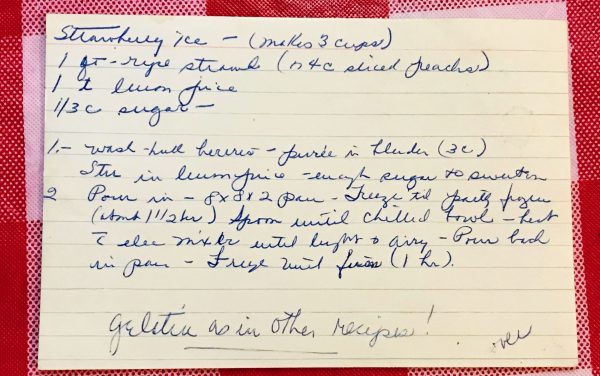 Strawberry ice - (makes 3 cups)
1 qt - ripe strawb (or 4c sliced peaches)
1 t lemon juice
1/3 c sugar -
1.- wash - hull berries - purée in blender (3c)
Stir in lemon juice - enough sugar to sweeten
2 Pour in - 8x8x2 pan - Freeze til partly frozen
(about 1 1/2 hr) Spoon until chilled bowl - beat
c̄ elec mixer until light & airy - Pour back
in pan - Freeze until firm (1 hr).
gelatin as in other recipes!
over